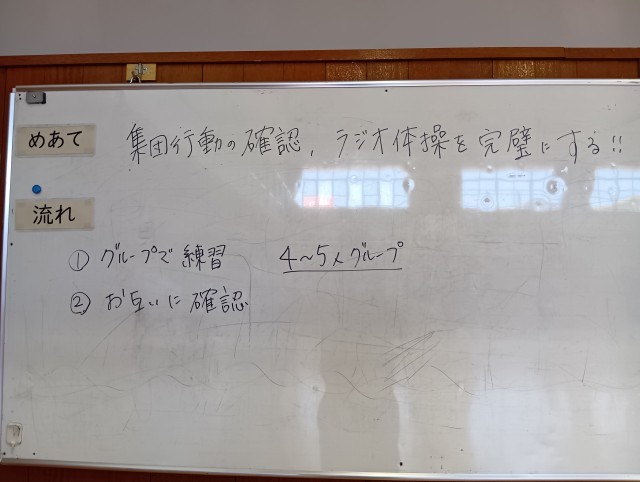 めあて 集団行動の確認、ラジオ体操を完璧にする!!
流れ
① グループで練習 4〜5人グループ
② お互いに確認